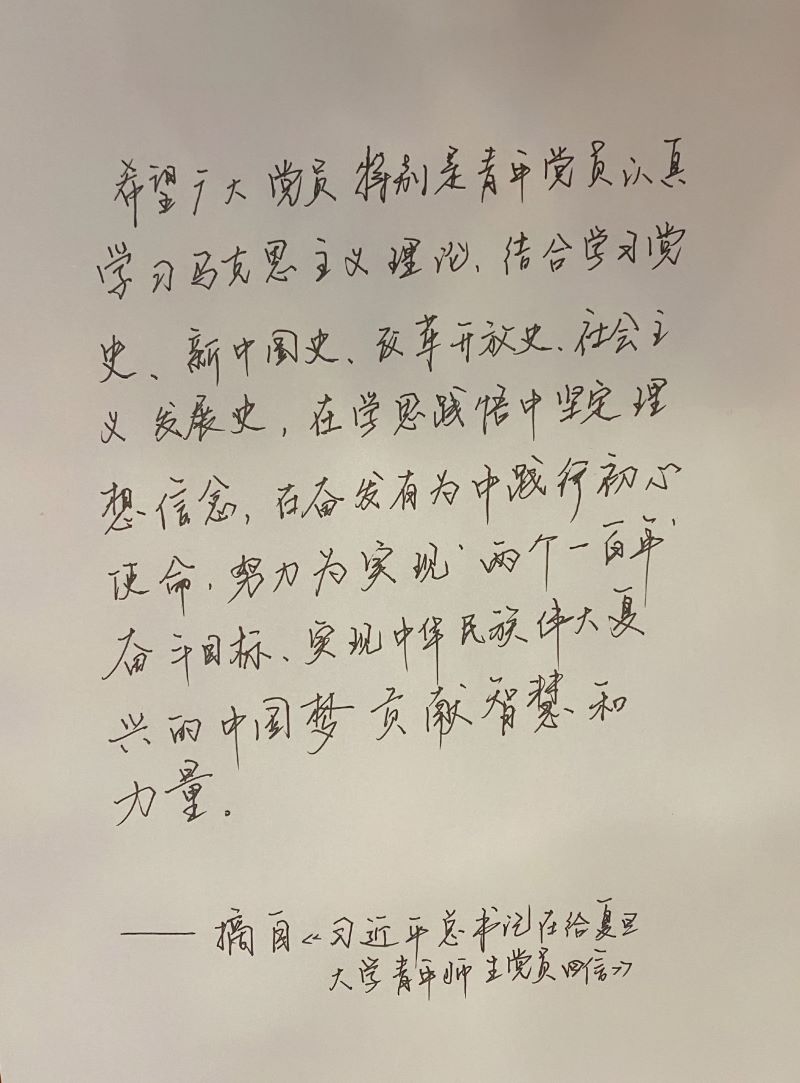 希望广大党员特别是青年党员认真
学习马克思主义理论、结合学习党
史、新中国史、改革开放史、社会主
义发展史，在学思践悟中坚定理
想信念，在奋发有为中践行初心
使命，努力为实现“两个一百年”
奋斗目标、实现中华民族伟大复
兴的中国梦贡献智慧和
力量。
——摘自《习近平总书记在给复旦
大学青年师生党员回信》